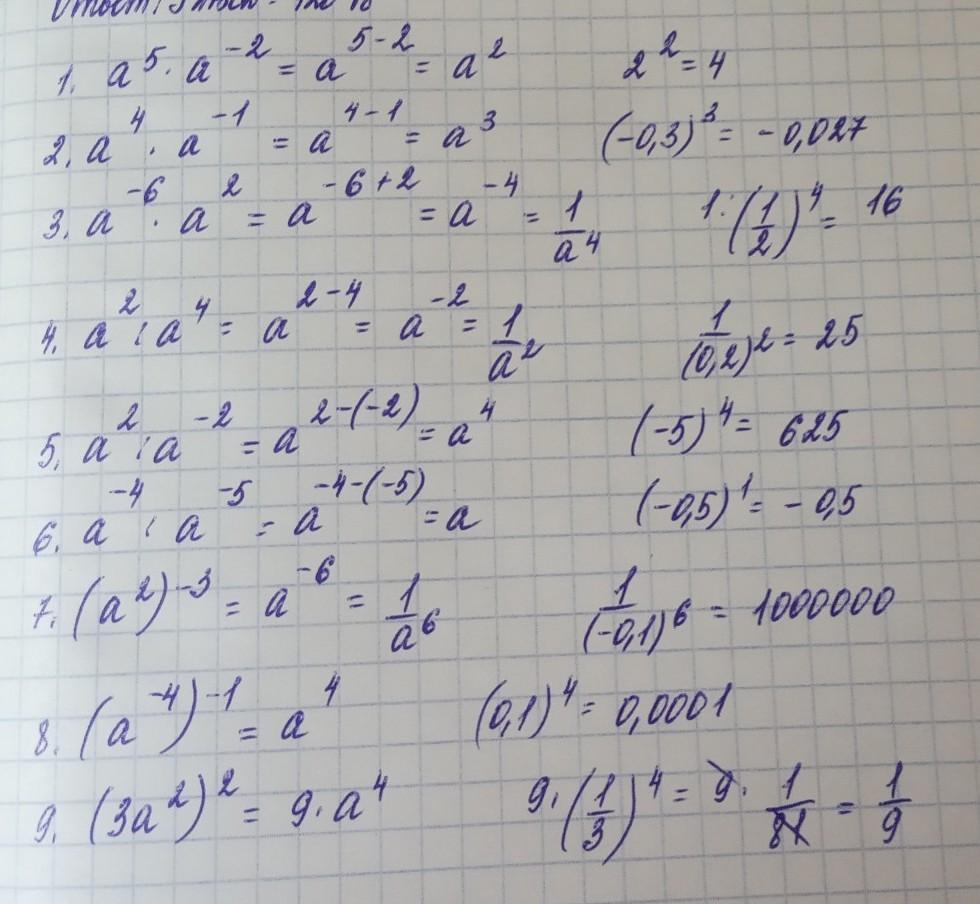 1. a⁵ · a⁻² = a⁵⁻² = a² 2² = 4
2. a⁴ · a⁻¹ = a⁴⁻¹ = a³ (-0,3)³ = -0,027
3. a⁻⁶ · a² = a⁻⁶⁺² = a⁻⁴ = 1/a⁴ 1:(1/2)⁴ = 16
4. a² : a⁴ = a²⁻⁴ = a⁻² = 1/a² 1/(0,2)² = 25
5. a² : a⁻² = a²⁻⁽⁻²⁾ = a⁴ (-5)⁴ = 625
6. a⁻⁴ : a⁻⁵ = a⁻⁴⁻⁽⁻⁵⁾ = a (-0,5)¹ = -0,5
7. (a²)⁻³ = a⁻⁶ = 1/a⁶ 1/(-0,1)⁶ = 1000000
8. (a⁻⁴)⁻¹ = a⁴ (0,1)⁴ = 0,0001
9. (3a²)² = 9 · a⁴ 9 · (1/3)⁴ = 9 · 1/81 = 1/9